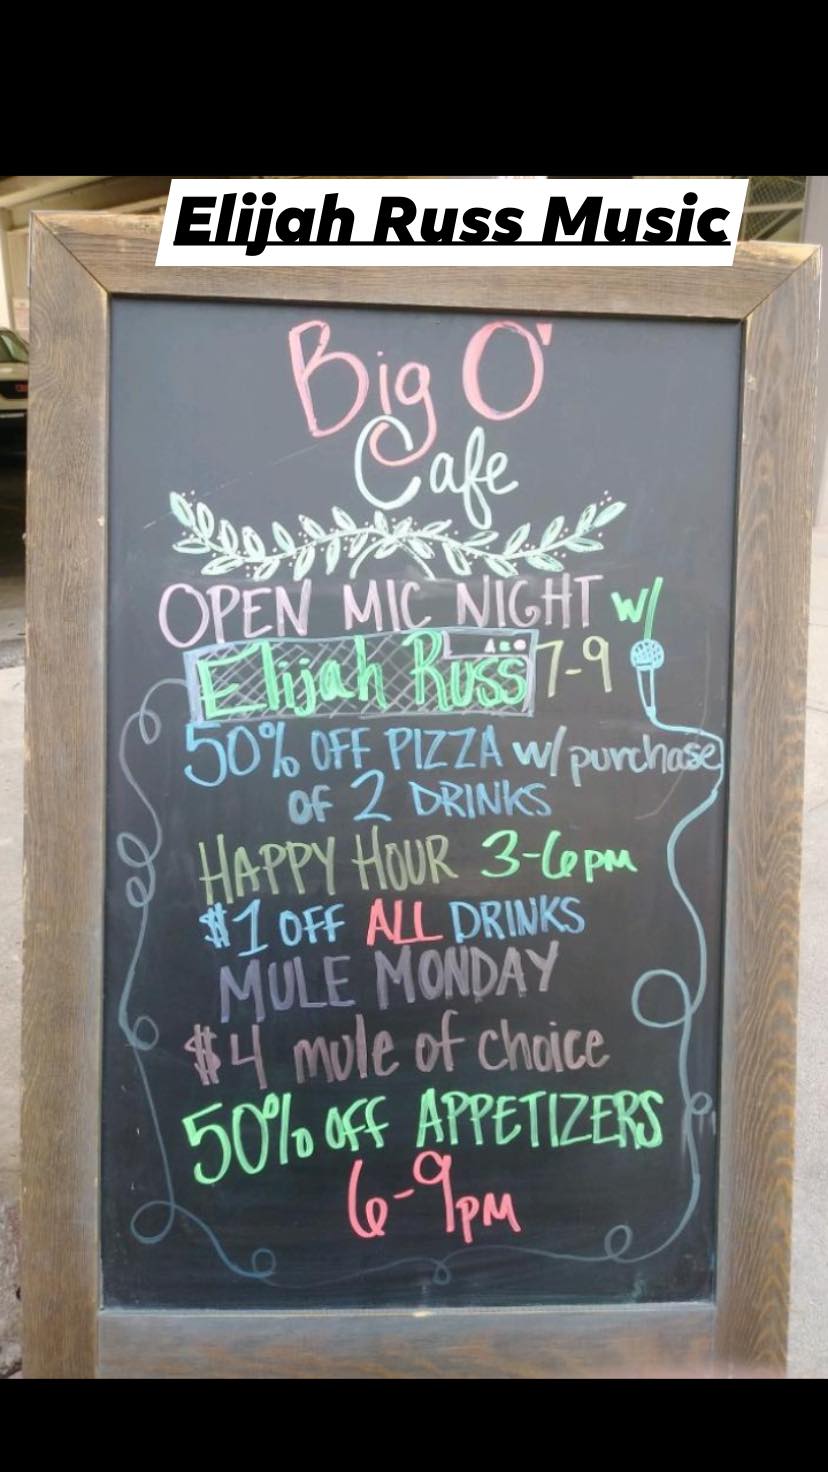 Elijah Russ Music
Big O'
Cafe
OPEN MIC NIGHT w/
Elijah Russ 7-9
50% OFF PIZZA w/purchase
OF 2 DRINKS
HAPPY HOUR 3-6pm
$1 OFF ALL DRINKS
MULE MONDAY
$4 mule of choice
50% OFF APPETIZERS
6-9pm